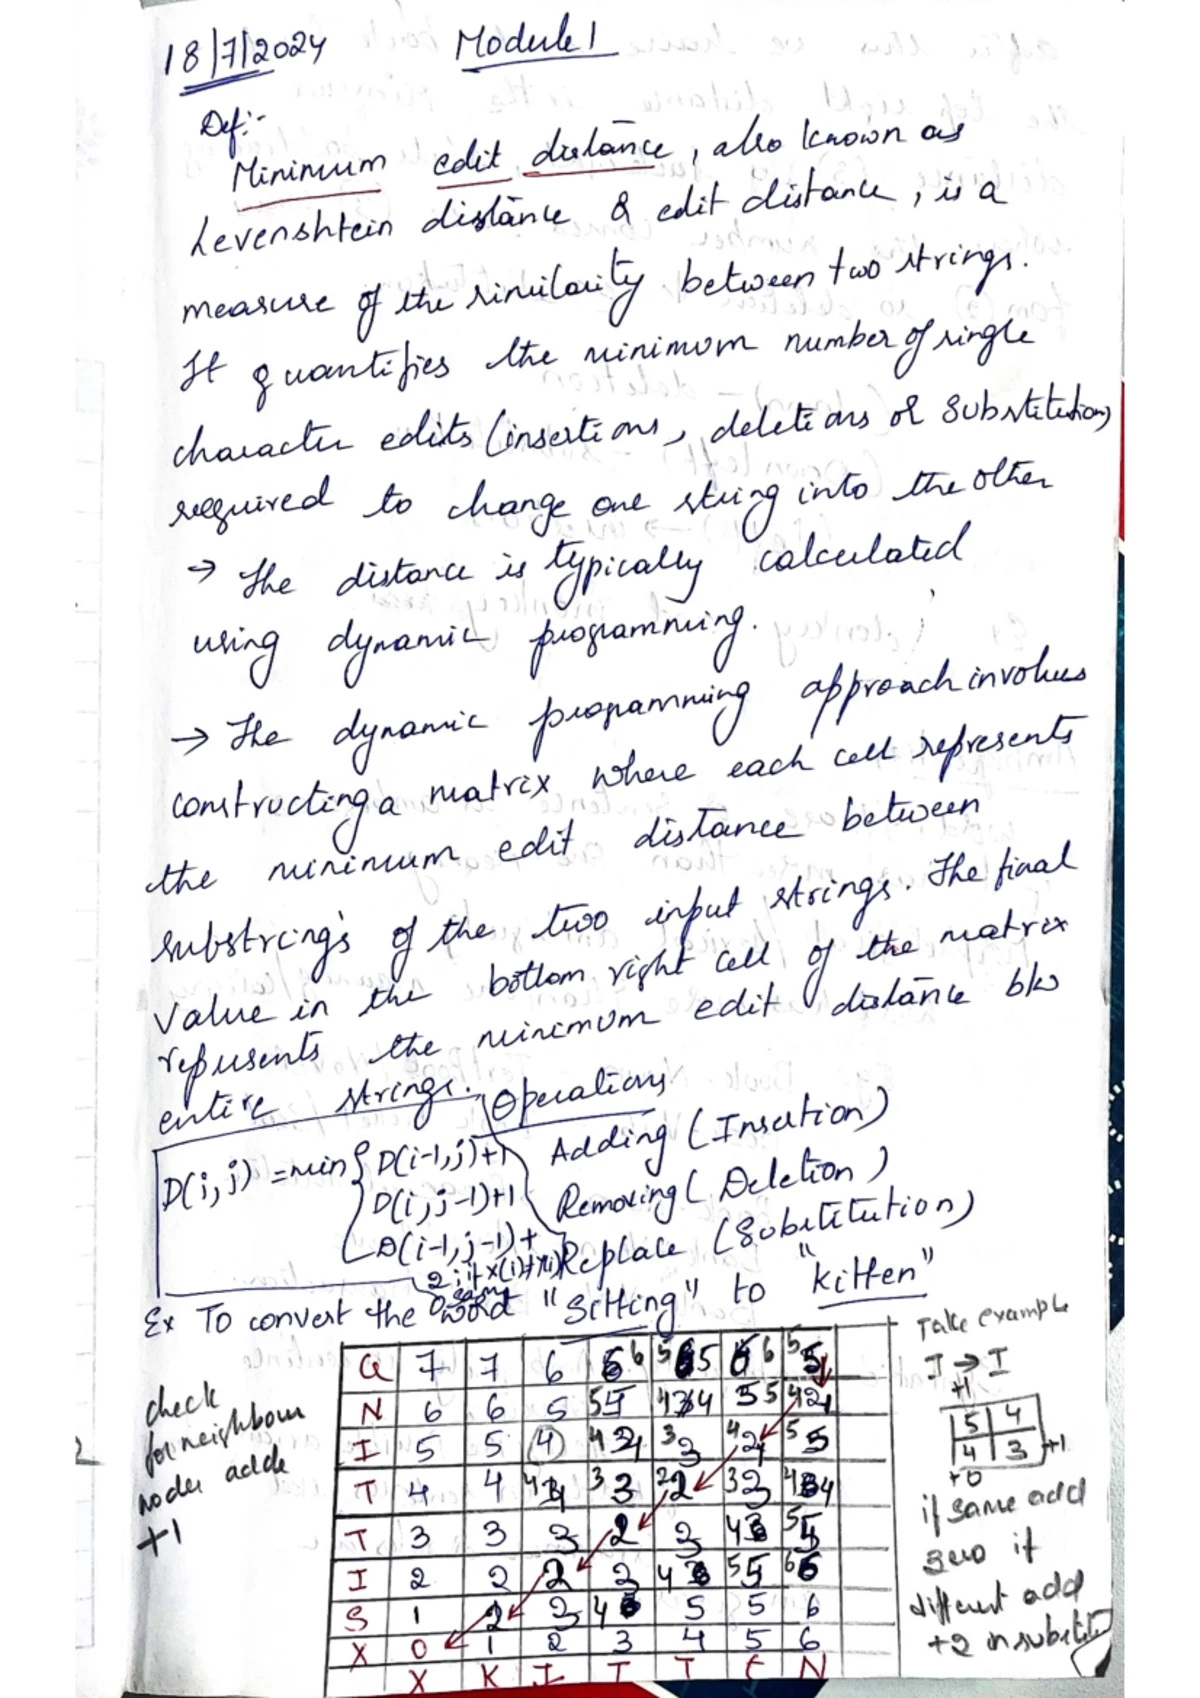 18/7/2024 Module 1
Def:-
Minimum edit distance, also known as
Levenshtein distance & edit distance, is a
measure of the similarity between two strings.
It quantifies the minimum number of single
character edits (insertions, deletions or substitutions)
required to change one string into the other
→ The distance is typically calculated
using dynamic programming.
→ The dynamic programming approach involves
constructing a matrix where each cell represents
the minimum edit distance between
substrings of the two input strings. The final
value in the bottom right cell of the matrix
represents the minimum edit distance b/w
entire strings.
Operations
D(i,j) = min { D(i-1,j)+1 Adding (Insertion)
D(i,j-1)+1 Removing (Deletion)
D(i-1,j-1)+ Replace (Substitution)
Ex To convert the word "Sitting" to "kitten"
check
for neighbour
nodes adde
+1
G 7 7 6
N 6 6 5
I 5 5 4
T 4 4
T 3 3 3 2 3
I 2 2 2 3
S 1 2 3 5 5 6
X 0 1 2 3 4 5 6
X K I T T E N
Take example
I → I
+1
5 4
4 3 +1
+0
if same add
zero if
different add
+2 in substit